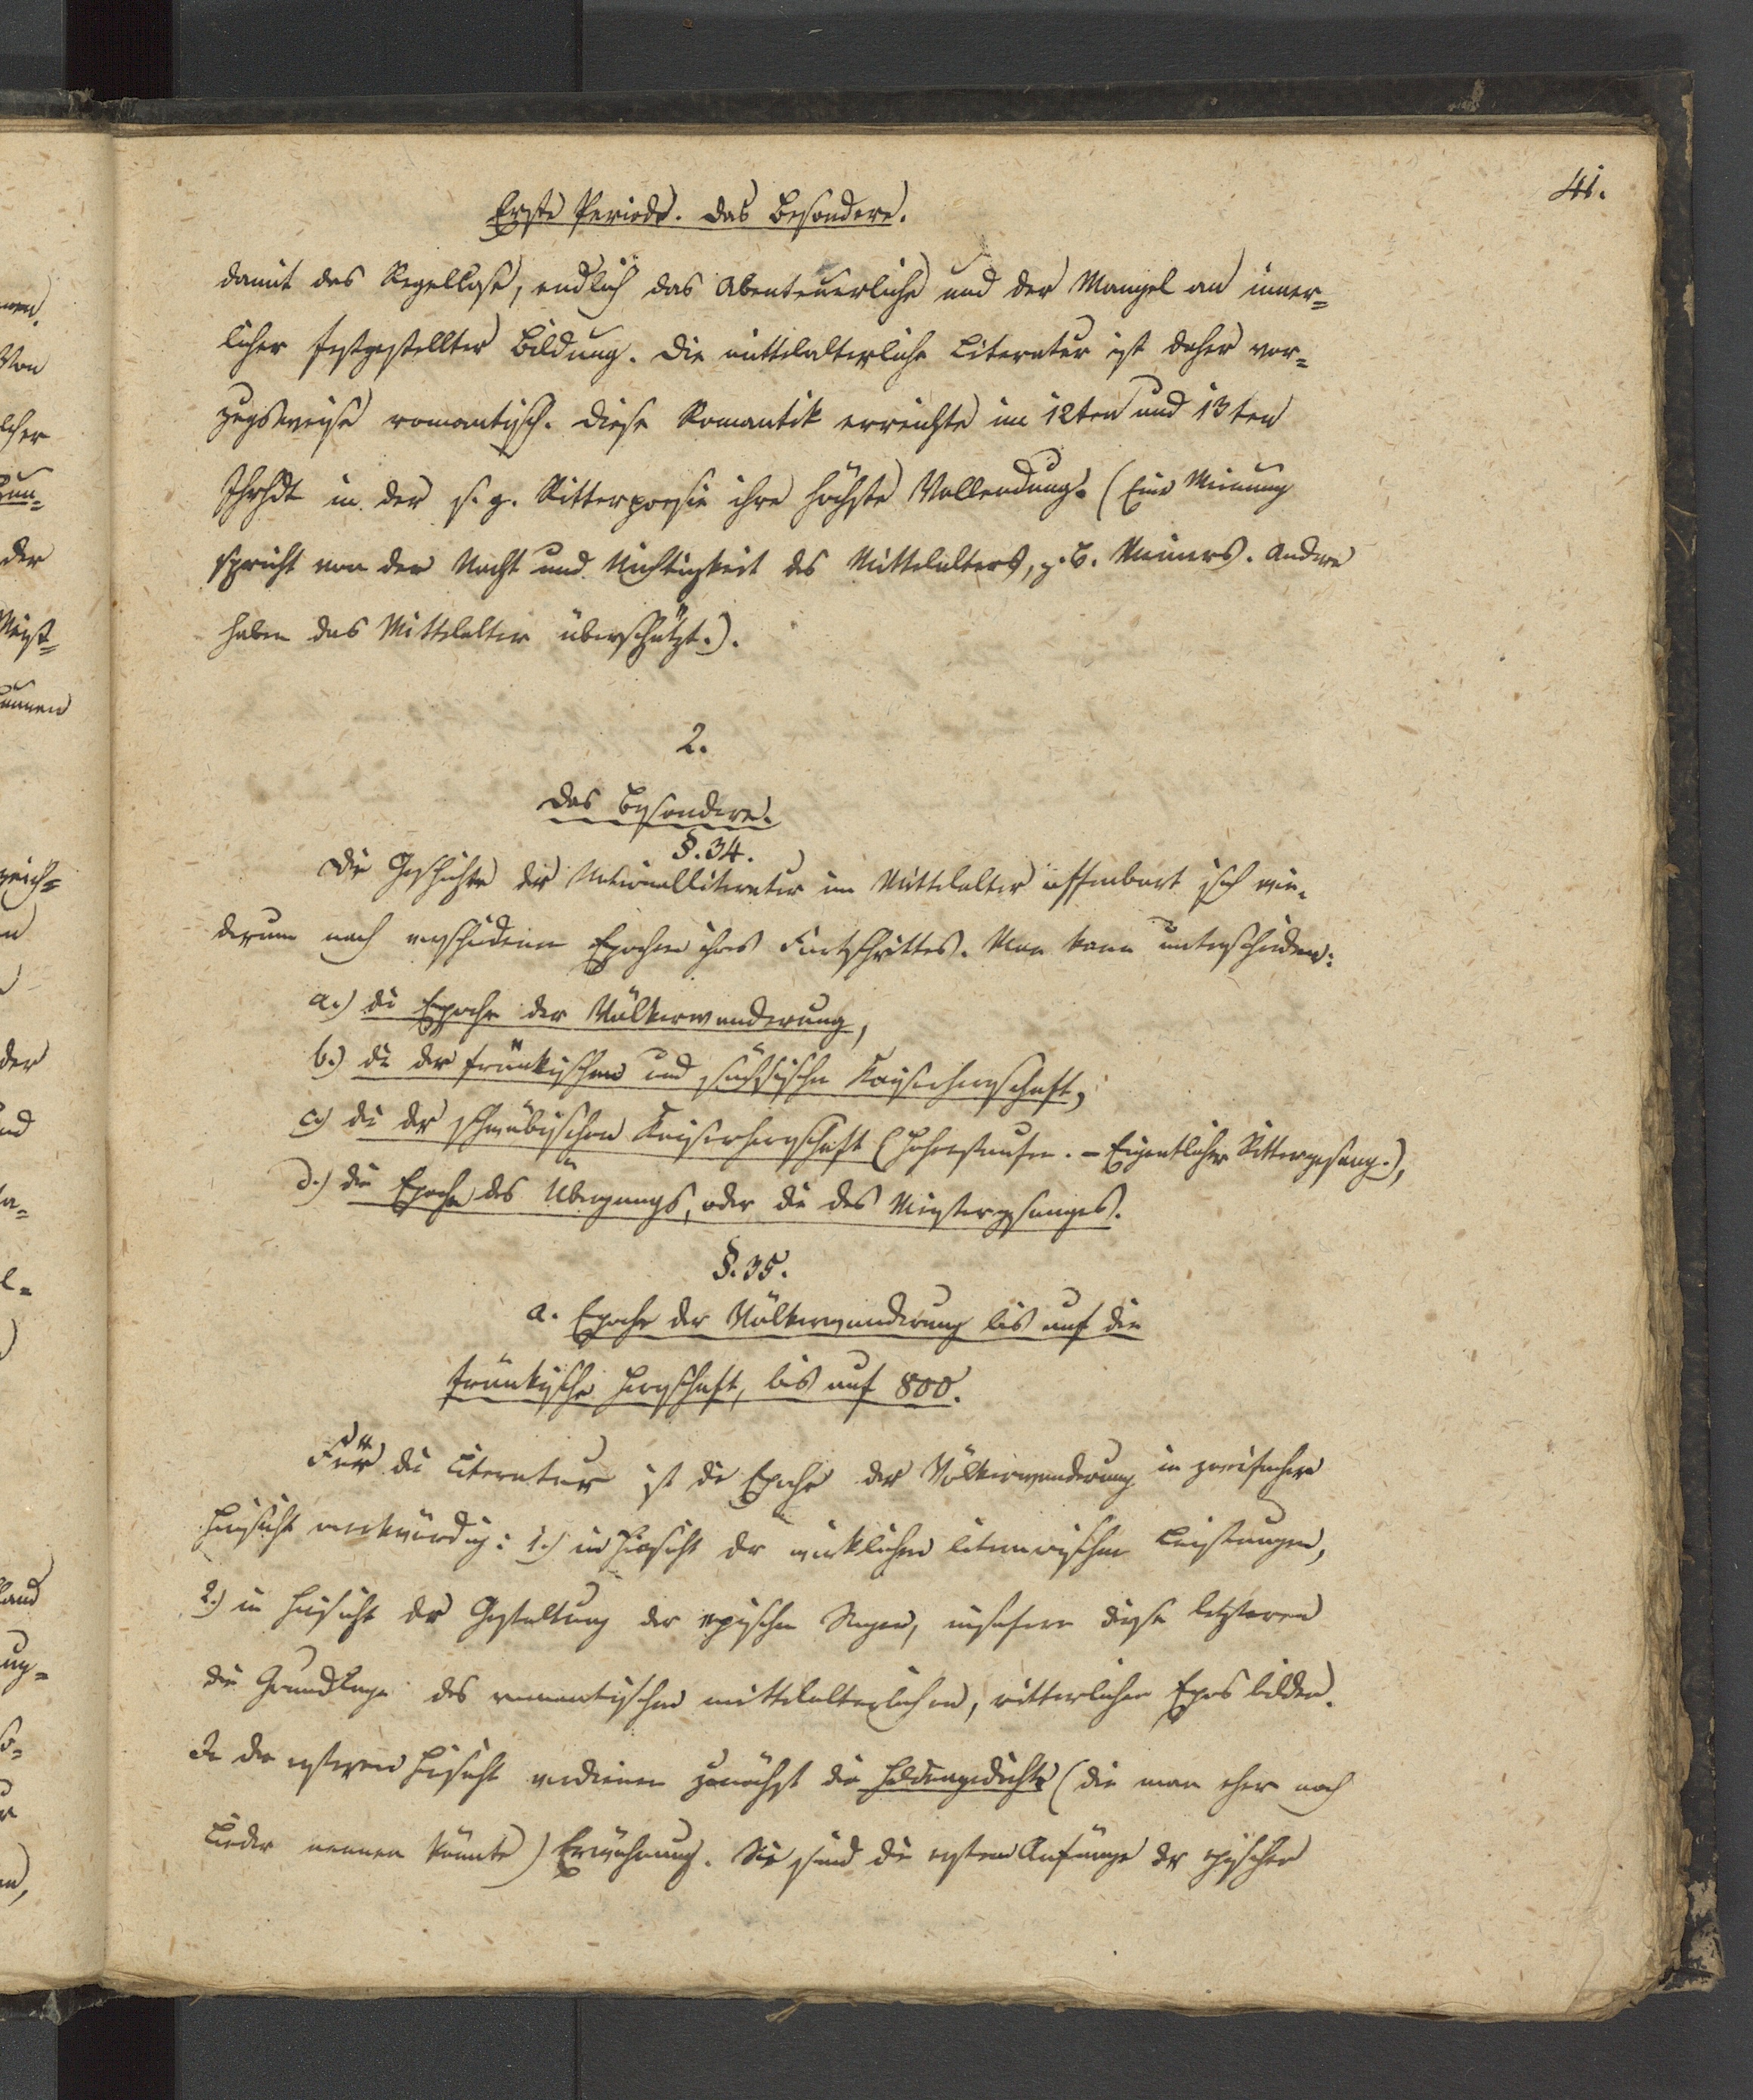 41.
Erste Periode. Das Besondere.
damit das Regellose, endlich das Abenteuerliche und der Mangel an inner=
licher festgestellter Bildung. Die mittelalterliche Literatur ist daher vor=
zugsweise romantisch. Diese Romantik erreichte im 12ten und 13ten
Jhrhdt in der s. g. Ritterpoesie ihre höchste Vollendung. (Eine Meinung
spricht von der Nacht und Nichtigkeit des Mittelalters, z. B. Meiners. Andere
haben das Mittelalter überschätzt.).
2.
Das Besondere.
§. 34.
Die Geschichte der Nationalliteratur im Mittelalter offenbart sich wie=
derum nach verschiedenen Epochen ihres Fortschrittes. Man kann unterscheiden:
a.) die Epoche der Völkerwanderung,
b.) die der fränkischen und sächsischen Kaiserherrschaft,
c.) die der schwäbischen Kaiserherrschaft (Hohenstaufen. – Eigentlicher Rittergesang.),
d.) die Epoche des Übergangs, oder die des Meistergesanges.
§. 35.
a. Epoche der Völkerwanderung bis auf die
fränkische Herrschaft, bis auf 800.
Für die Literatur ist die Epoche der Völkerwanderung in zweifacher
Hinsicht merkwürdig: 1.) in Hinsicht der wirklichen literarischen Leistungen,
2.) in Hinsicht der Gestaltung der epischen Sagen, insofern diese letzteren
die Grundlage des romantischen mittelalterlichen, ritterlichen Epos bilden.
In der ersteren Hinsicht verdienen zunächst die Heldengedichte (die man eher noch
Lieder nennen könnte) Erwähnung. Sie sind die ersten Anfänge der epischen